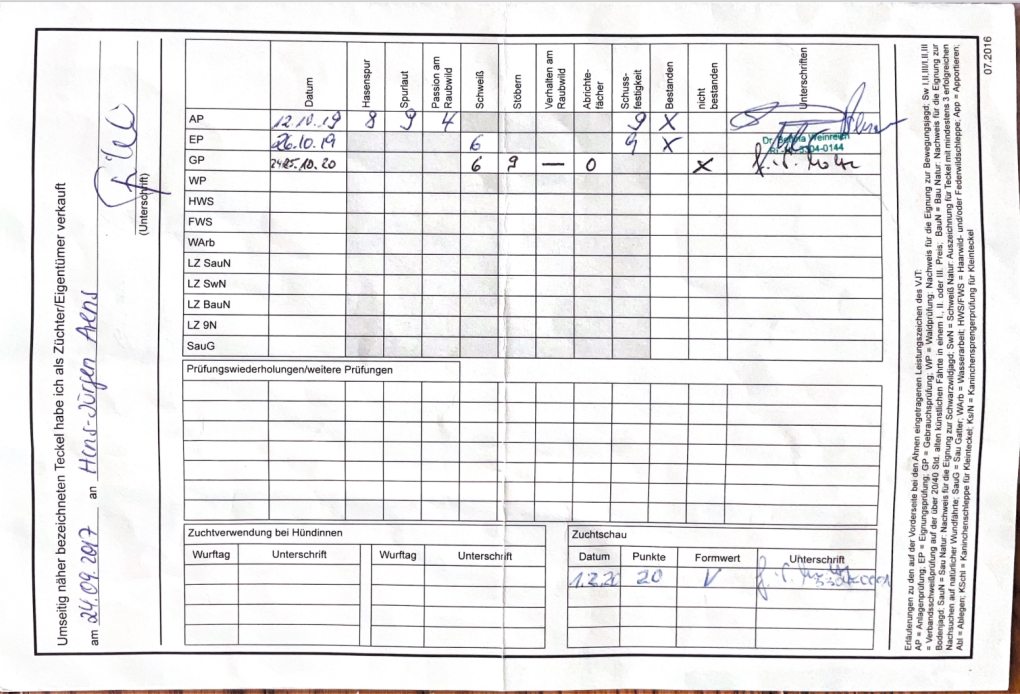 Umseitig näher bezeichneten Teckel habe ich als Züchter/Eigentümer verkauft
am 24.09.2017 an Hans-Jürgen
(Unterschrift)
Datum Hasenspur Spurlaut Passion am Raubwild Schweiß Stöbern Verhalten am Raubwild Abrichtefächer Schussfestigkeit Bestanden nicht bestanden Unterschriften
AP 12.10.19 8 9 4 9 X
EP 26.10.19 6 X
GP 24.25.10.20 6 9 — 0 X
WP
HWS
FWS
WArb
LZ SauN
LZ SwN
LZ BauN
LZ 9N
SauG
Prüfungswiederholungen/weitere Prüfungen
Zuchtverwendung bei Hündinnen
Wurftag Unterschrift Wurftag Unterschrift
Zuchtschau
Datum Punkte Formwert Unterschrift
1.2.20 20 V
Erläuterungen zu den auf der Vorderseite bei den Ahnen eingetragenen Leistungszeichen des VJT:
AP = Anlagenprüfung; EP = Eignungsprüfung; GP = Gebrauchsprüfung; WP = Waldprüfung: Nachweis für die Eignung zur Bewegungsjagd; Sw I,II,III/I,II,III
= Verbandsschweißprüfung auf der über 20/40 Std. alten künstlichen Fährte in einem I., II. oder III. Preis; BauN = Bau Natur: Nachweis für die Eignung zur
Bodenjagd; SauN = Sau Natur: Nachweis für die Eignung zur Schwarzwildjagd; SwN = Schweiß Natur: Auszeichnung für Teckel mit mindestens 3 erfolgreichen
Nachsuchen auf natürlicher Wundfährte; SauG = Sau Gatter; WArb = Wasserarbeit; HWS/FWS = Haarwild- und/oder Federwildschleppe; App = Apportieren;
Abl = Ablegen; KSchl = Kaninchenschleppe für Kleinteckel; Ks/N = Kaninchensprengerprüfung für Kleinteckel
07.2016